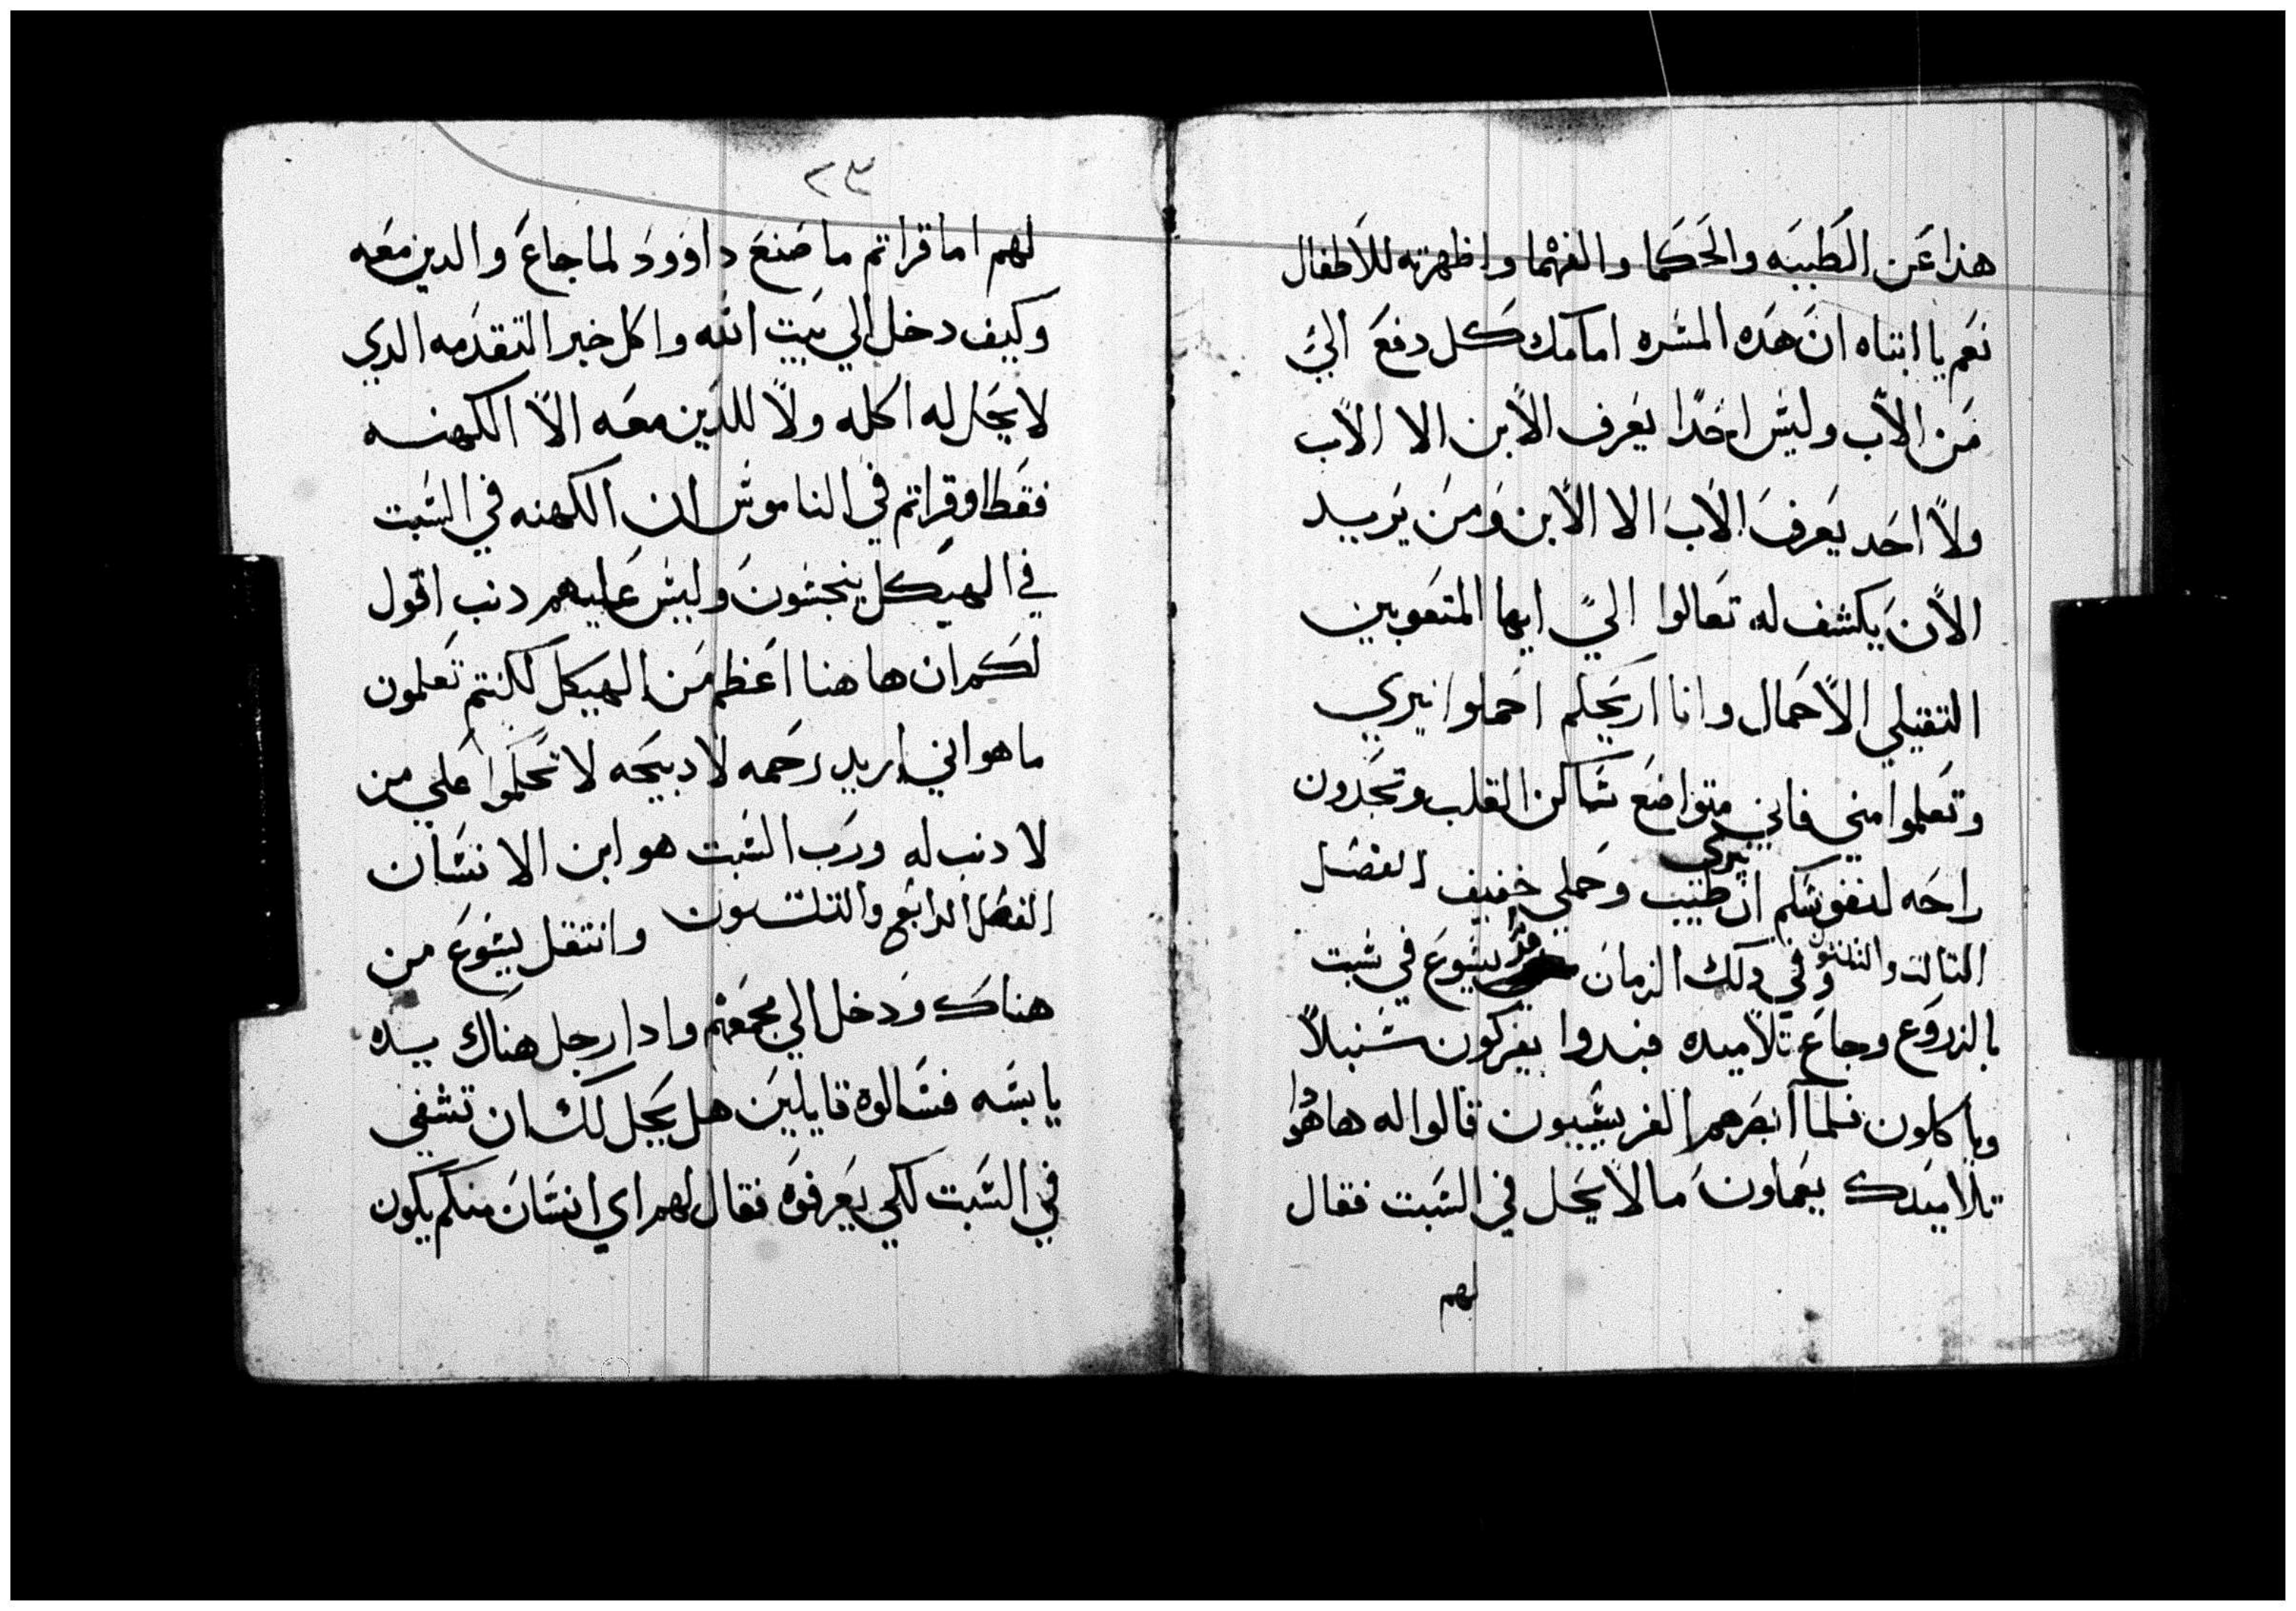 هذا عن الطبيه والحكما والفهما واظهرته للاطفال
نعم يا ابتاه ان هده المشره امامك كل دفع الي
من الاب وليس احدا يعرف الابن الا الاب
ولا احد يعرف الاب الا الابن ومن يريد
الابن يكشف له تعالوا الي ايها المتعوبين
التقيلي الاحمال وانا اريحكم احملوا نيري
وتعلموا مني فاني متواضع ساكن القلب وتجدون
راحه لنفوسكم ان نيري طيب وحملي خفيف الفصل
التالت والتلتون وفي دلك الزمان مر يسوع في سبت
بالزروع وجاع تلاميده فبدوا يفركون سنبلا
وياكلون فلما ابصرهم الفريسيون قالوا له هاهوا
تلاميدك يعملون ما لا يحل في السبت فقال
لهم
٢٣
لهم اما قراتم ما صنع داوود لما جاع والدين معه
وكيف دخل الي بيت الله واكل خبز التقدمه الدي
لا يحل له اكله ولا للدين معه الا الكهنه
فقط اوقراتم في الناموس ان الكهنه في السبت
في الهيكل ينجسون وليس عليهم دنب اقول
لكم ان هاهنا اعظم من الهيكل لكنتم تعلمون
ما هو اني اريد رحمه لا دبيحه لا تحكموا علي من
لا دنب له ورب السبت هو ابن الانسان
الفصل الرابع والتلتون وانتقل يسوع من
هناك ودخل الي مجمعهم وادا رجل هناك يده
يابسه فسالوه قايلين هل يحل لك ان تشفي
في السبت لكي يعرفوه فقال لهم اي انسان منكم يكون